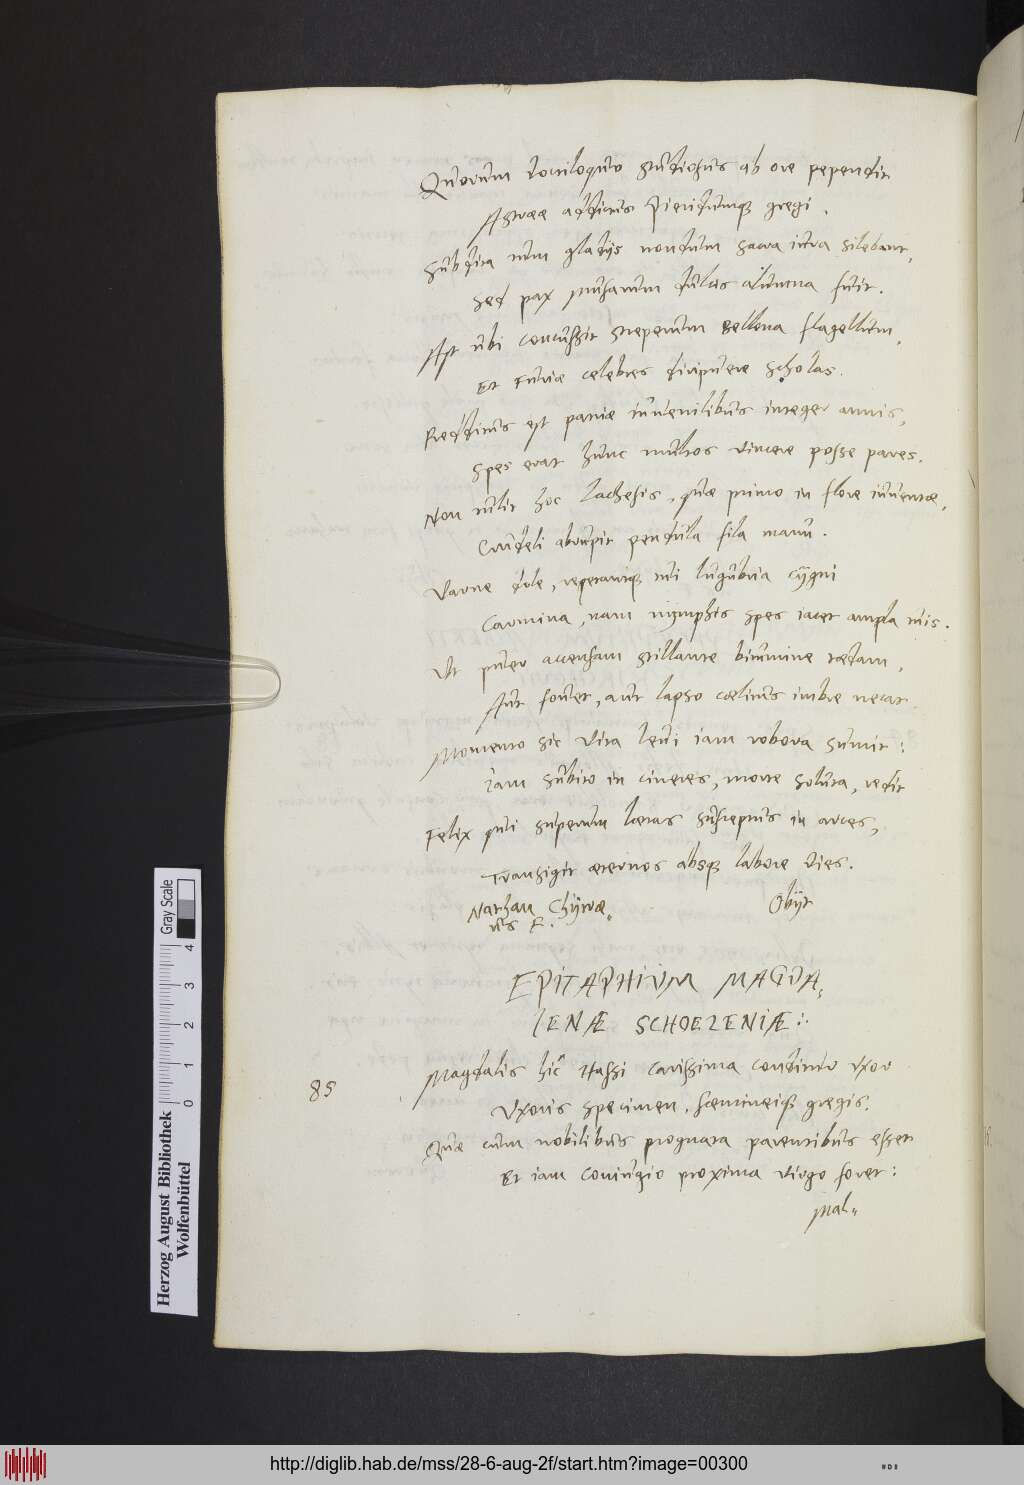 Quorum dociloquo studiosus ab ore pependit
Astrææ addictus Pieridumq́ gregi.
Subdita tum gladijs nondum sacra iura silebant,
Sed pax Musarum dulcis alumna fuit.
Ast ubi concussit strepentem Bellona flagellum,
Et Furiæ celebres diripuere scholas.
Redditus est patriæ iuuenilibus integer annis,
Spes erat hunc multos vincere posse pares.
Non tulit hoc Lachesis, quæ primo in flore iuuentæ,
Crudeli abrupit pendula fila manu.
Varne dole, repetantq́ tui lugubria cygni
Carmina, nam nymphis spes iacet ampla tuis.
Ut puter accensam stillante bitumine tædam,
Aut fouet, aut lapso cœlitus imbre necat.
Momento sic vita leui iam robora sumit:
Iam subito in cineres, morte soluta, redit
Felix qui superum lætas susceptus in arces,
Transigit æternos absq́ labore dies.
Nathan Chytræ
us F.
Obijt
EPITAPHIVM MAGDA
LENÆ SCHOEZENIÆ:
85
Magdalis hic Hassi carissima conditur vxor
Vxoris specimen, fœmineiq́ gregis.
Quæ cum nobilibus prognata parentibus esset
Et iam coniugio proxima virgo foret:
Mal
Herzog August Bibliothek
Wolfenbüttel
0 1 2 3 4
Gray Scale
http://diglib.hab.de/mss/28-6-aug-2f/start.htm?image=00300